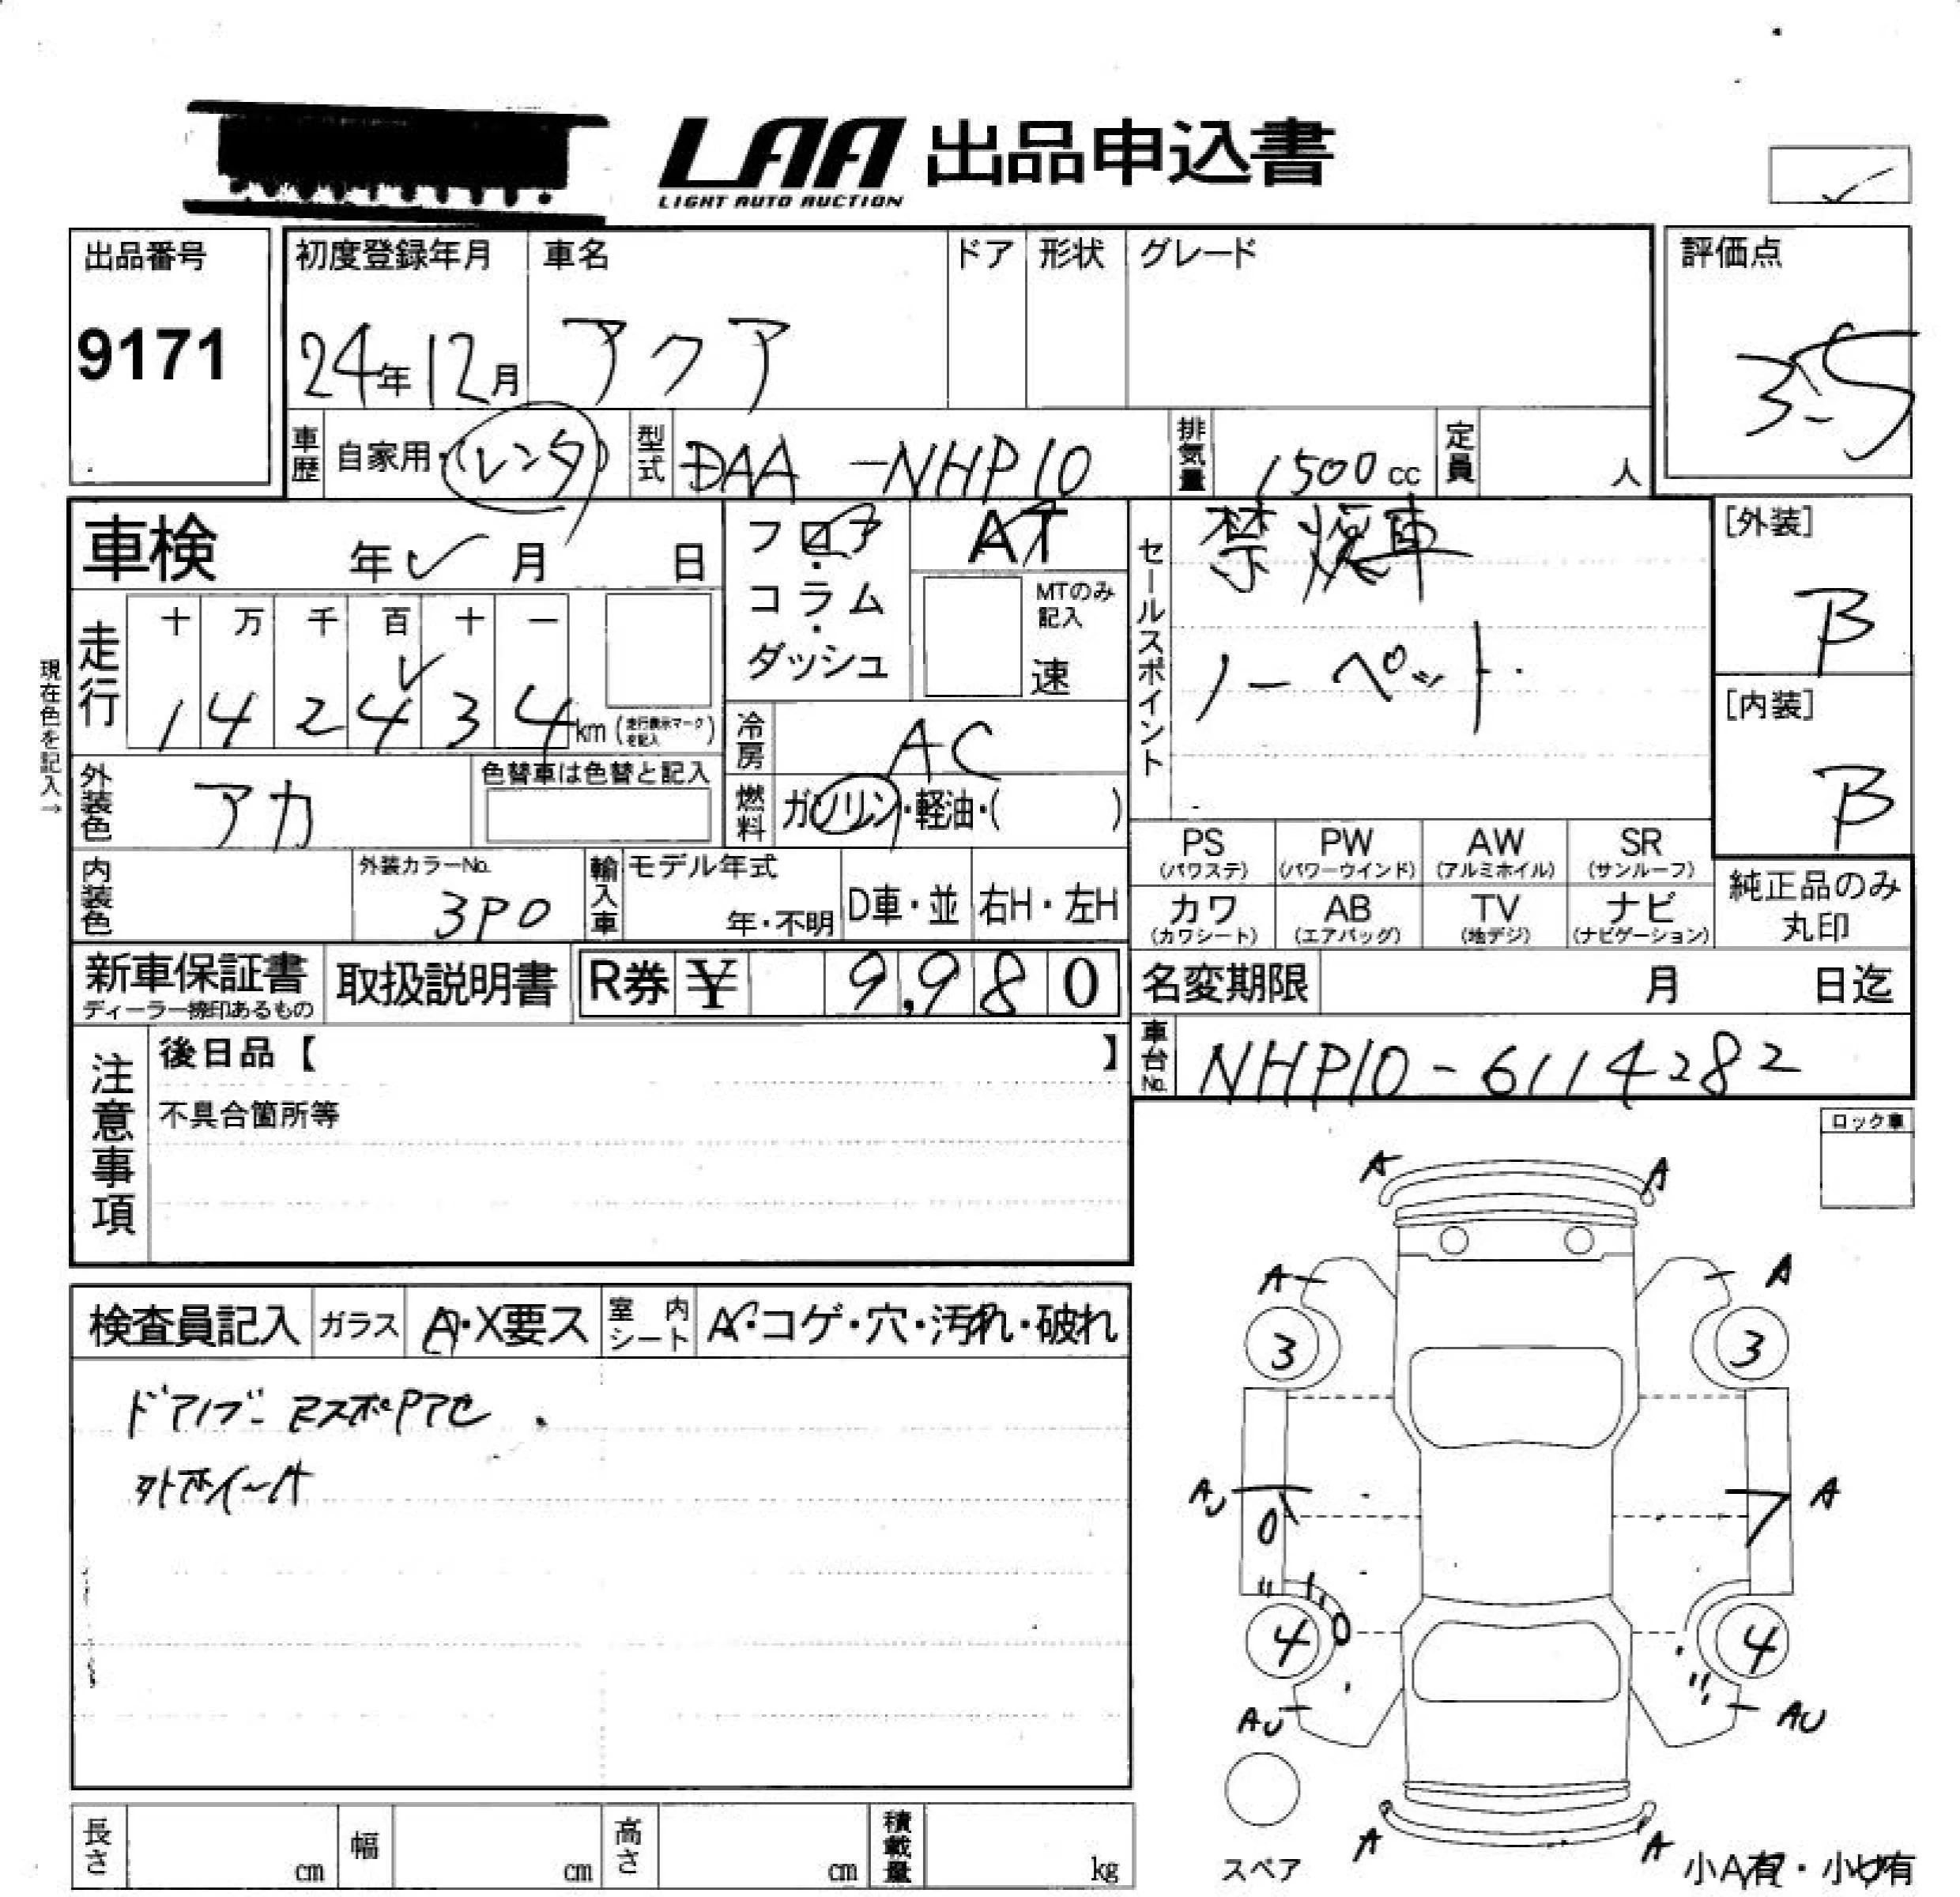 LAA 出品申込書
LIGHT AUTO AUCTION
出品番号
9171
初度登録年月
24年12月
車名
アクア
ドア
形状
グレード
評価点
3.5
車歴
自家用・(レンタ)
型式
DAA-NHP10
排気量
1500cc
定員
人
車検
年 月 日
フロア・コラム・ダッシュ
AT
MTのみ記入
速
セールスポイント
禁煙車
ノーペット
[外装]
B
[内装]
B
現在色を記入→
走行
十 万 千 百 十 一
1 4 2 4 3 4 km (走行表示マークを記入)
冷房
AC
外装色
アカ
色替車は色替と記入
燃料
ガソリン・軽油・( )
内装色
外装カラーNo.
3P0
輸入車
モデル年式
年・不明
D車・並
右H・左H
PS (パワステ)
PW (パワーウインド)
AW (アルミホイル)
SR (サンルーフ)
カワ (カワシート)
AB (エアバッグ)
TV (地デジ)
ナビ (ナビゲーション)
純正品のみ丸印
新車保証書
ディーラー捺印あるもの
取扱説明書
R券 ¥ 9,980
名変期限
月 日迄
車台No.
NHP10-6114282
注意事項
後日品【 】
不具合箇所等
ロック車
検査員記入
ガラス
A・X要ス
室内シート
A・コゲ・穴・汚れ・破れ
A A
A A
3 3
AU A
4 4
AU AU
A A
スペア
小A有・小U有
長さ cm
幅 cm
高さ cm
積載量 kg